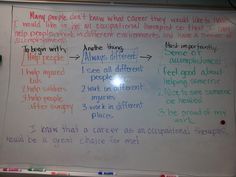 Many people don't know what career they would like to have.
I would like to be an occupational therapist so that I can
help people
different environments and have a sense of
accomplishment.
To begin with
Help people
1. help injured
kids
2. help soldiers
3. help people
after surgery
Another thing,
Always different
1. see all different
people
2. work on different
injuries
3. work in different
places.
Most importantly,
Sense of
accomplishment
1. feel good about
helping
someone
2. Nice to see someone
healed
3. be proud of my
work.
I know that a career as an occupational therapist
would be a great choice for me!